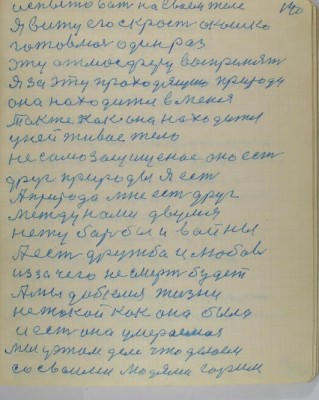 испытовать на своем теле 140
Я вижу его скрост окошко
готовлюсь один раз
эту атмосферу воспринят
Я за эту проходящию природу
она находится в меня
также как она находится
у ней живае тело
не самозащищенае оно ест
друг природы Я ест
А природа мне ест друг
между нами двумя
нету барбы и войны
А ест дружба и любов
из за чего не смерт будет
А мы добъемся жизни
не такой как она была
и ест она умераемая
мы у этом деле что делаем
со своими людями горим